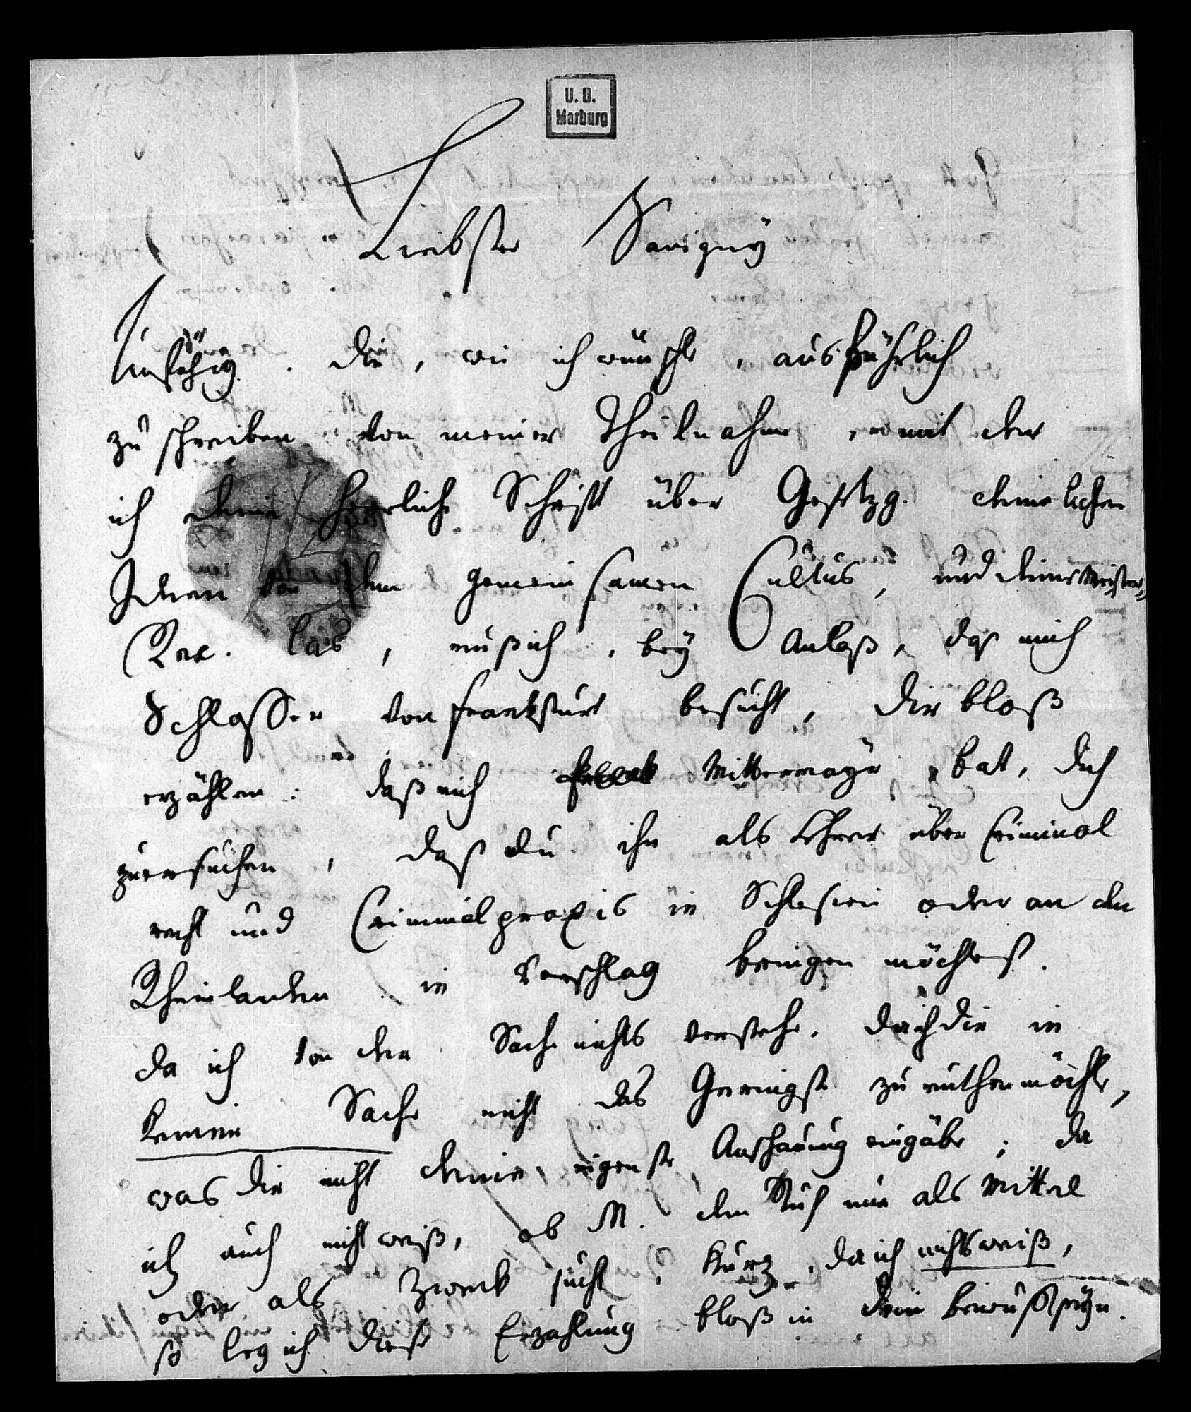 U. B.
Marburg
Liebster Savigny
Unfähig, dir, wie ich wünschte, ausführlich
zu schreiben von meiner Theilnahme, womit der
ich deine herrliche Schrift über Gesetzg. deine lichten
Ideen von dem gemeinsamen Cultus, und deine Meister-
Rec. las, muß ich, bey Anlaß, daß mich
Schlosser von Frankfurt besucht, dir bloß
erzählen: daß mich Mittermayr bat, dich
zu ersuchen, daß du ihn als Lehrer über Criminal
recht und Criminalpraxis in Schlesien oder an den
Rheinlanden in Vorschlag bringen möchtest.
Da ich von der Sache nichts verstehe, da ich dir in
keiner Sache nicht das Geringste zumuthen möchte,
was dir nicht deine eigenste Anschauung eingäbe; da
ich auch nicht weiß, ob M. den Ruf nur als Mittel
oder als Zweck sucht, kurz, da ich nichts weiß,
so leg ich dieß Erzählung bloß in dein Bewußtseyn.